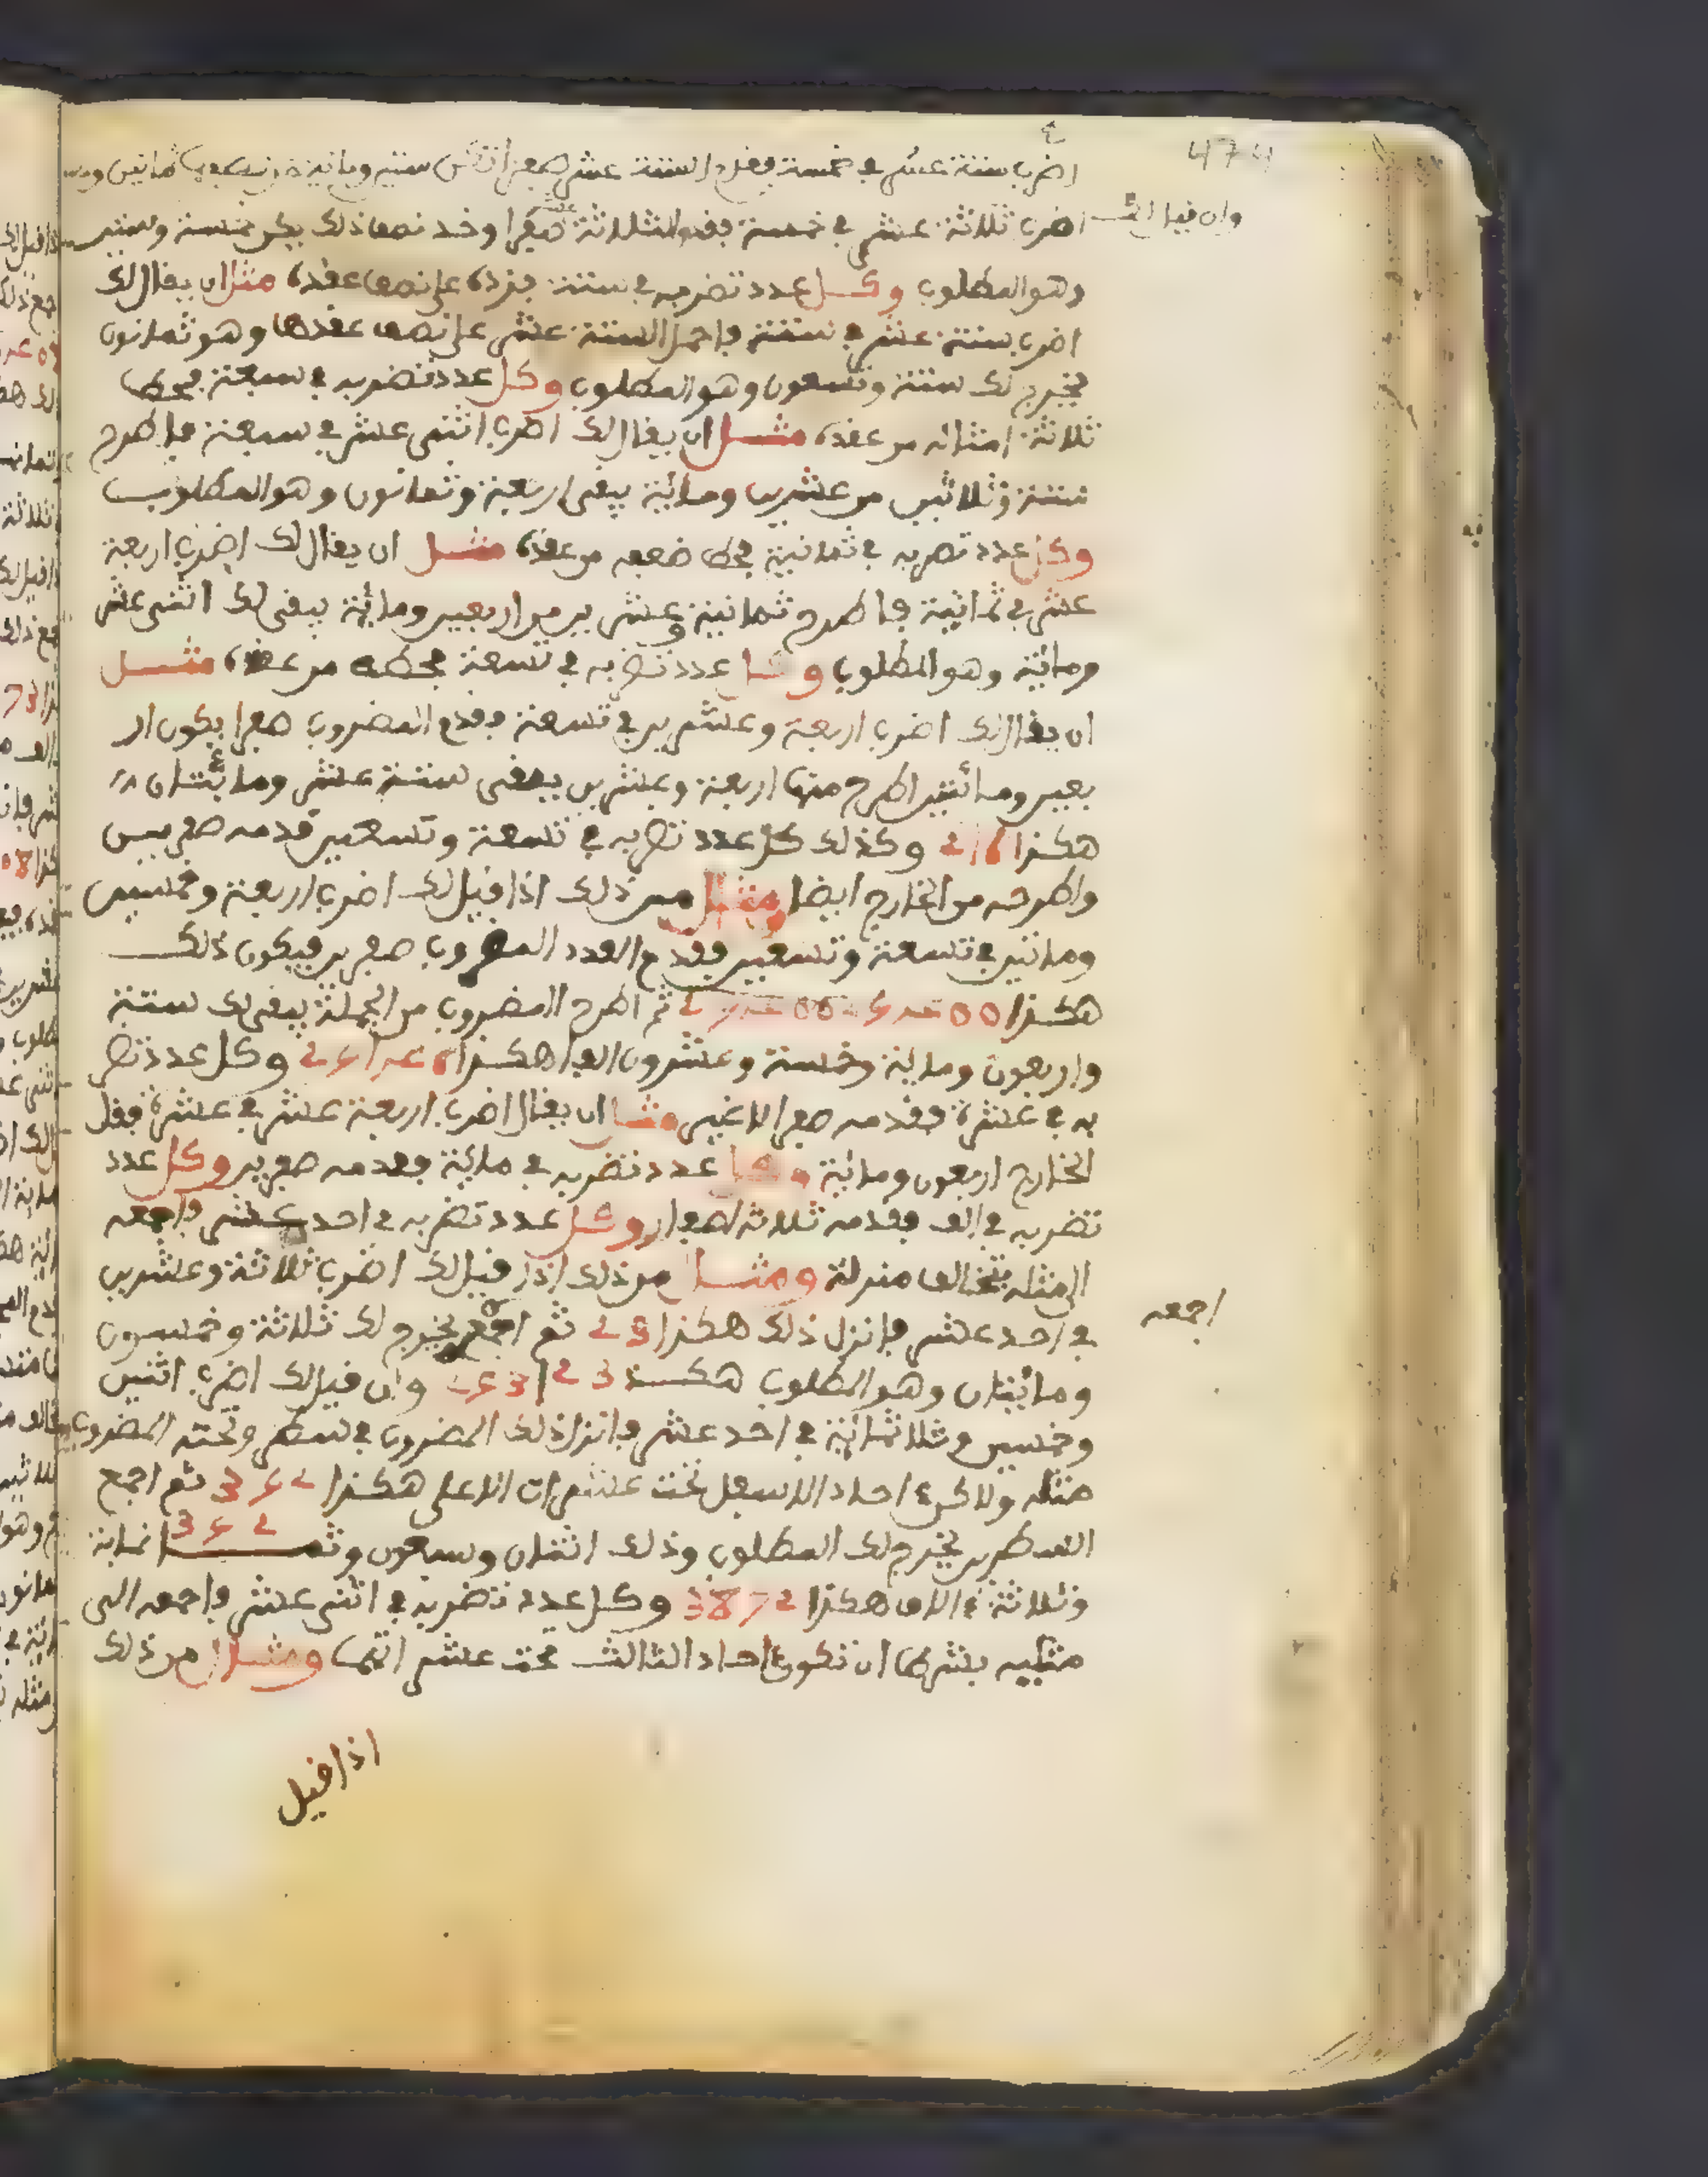 474
اضرب ستة عشر في خمسة فقدم الستة عشر صفرا تكن ستين ومائة خذ نصفها ثمانين وهو
وان قيل لك
اضرب ثلاثة عشر في خمسة فقدم الثلاثة عشر صفرا وخذ نصف ذلك يكن خمسة وستين
وهو المطلوب وكل عدد تضربه في ستة فزده على نصف عقده مثل ان يقال لك
اضرب ستة عشر في ستة فاحمل الستة عشر على نصف عقدها وهو ثمانون
يخرج لك ستة وتسعون وهو المطلوب وكل عدد تضربه في سبعة فحط
ثلاثة امثاله من عقده مثل ان يقال لك اضرب اثنى عشر في سبعة فاطرح
ستة وثلاثين من عشرين ومائية يبقى اربعة وثمانون وهو المطلوب
وكل عدد تضربه في ثمانية فحط ضعفه من عقده مثل ان يقال لك اضرب اربعة
عشر في ثمانية فاطرح ثمانية وعشرين من اربعين ومائية يبقى لك اثنى عشر
ومائية وهو المطلوب وكل عدد تضربه في تسعة فحطه من عقده مثل
ان يقال لك اضرب اربعة وعشرين في تسعة فقدم المضروب صفرا يكون ار
بعين ومائتين اطرح منها اربعة وعشرين يبقى ستة عشر ومائتان
هكذا 216 وكذلك كل عدد تضربه في تسعة وتسعين قدمه صفرين
واطرحه من الخارج ايضا مثال من ذلك اذا قيل لك اضرب اربعة وخمسين
ومائتين في تسعة وتسعين فقدم العدد المضروب صفرين فيكون ذلك
هكذا 25400 ثم اطرح المضروب من الجملة يبقى لك ستة
واربعون ومائة وخمسة وعشرون الفا هكذا 25146 وكل عدد تضر
به في عشرة فقدمه صفر الا غير مثل ان يقال اضرب اربعة عشر في عشرة فقل
الخارج اربعون ومائية وكل عدد تضربه في مائية فقدمه صفرين وكل عدد
تضربه في الف فقدمه ثلاثة اصفار وكل عدد تضربه في احد عشر فاجمعه
الى مثله بتخالف منزلة ومثال من ذلك اذا قيل لك اضرب ثلاثة وعشرين
في احد عشر فانزل ذلك هكذا 23 ثم اجمع يخرج لك ثلاثة وخمسون
اجمعه
ومائيتان وهو المطلوب هكذا 253 وان قيل لك اضرب اثنين
وخمسين وثلاثمائية في احد عشر فانزل ذلك المضروب في سطر وتحته المضروب
مثله ولاكن احاد الاسفل تحت عشرات الاعلى هكذا 352 ثم اجمع
352
السطرين يخرج لك المطلوب وذلك اثنان وسبعون وثمانمائة
وثلاثة ءالاف هكذا 3872 وكل عدد تضربه في اثنى عشر فاجمعه الى
مثليه بشرط ان تكون احاد الثالث تحت عشر اتهما ومثال من ذلك
اذا قيل